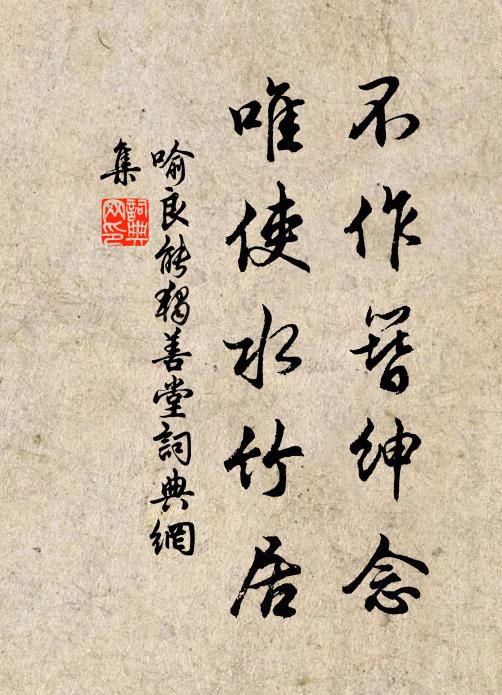 不作簪绅念
唯使水竹居
喻良能独善堂詞典網
集
詞典
网印